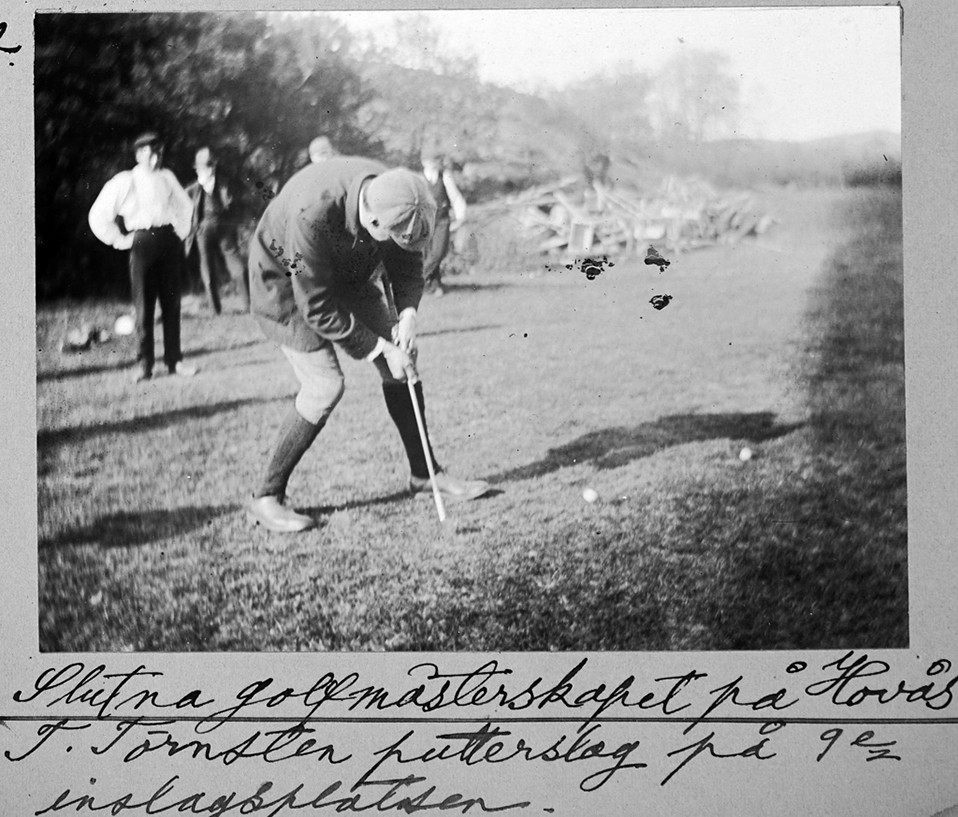 Slutna golfmästerskapet på Hovås
T. Törnsten putterslag på 9e
inslagsplatsen.